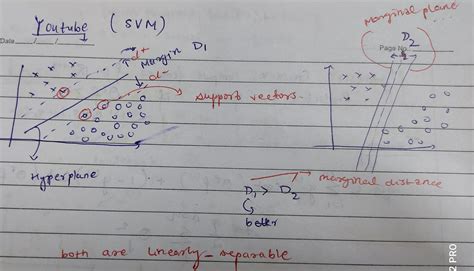 Youtube (SVM)
Marginal plane
Date
Page No.
D2
d+
Margin D1
d-
support vectors.
Hyperplane
marginal distance
D1 > D2
better
both are linearly-separable
2 PRO